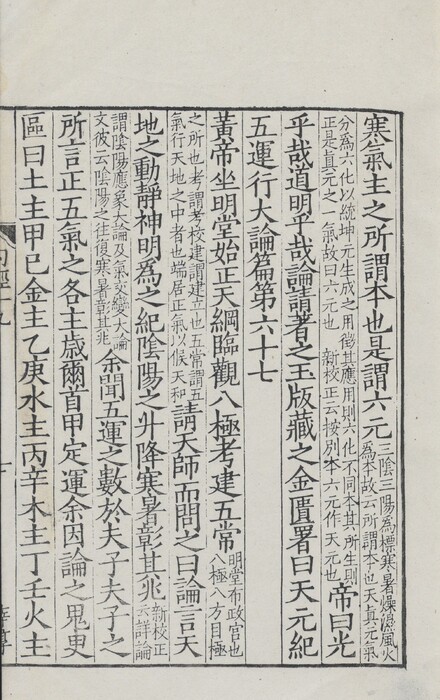 寒氣主之所謂本也是謂六元三陰三陽為標寒暑燥濕風火為本故云所謂本也天真元氣
分為六化以統坤元生成之用徵其應用則六化不同本其所生則正是真元之一氣故曰六元也 新校正云按別本六元作天元也帝曰光
乎哉道明乎哉論請著之玉版藏之金匱署曰天元紀
五運行大論篇第六十七
黃帝坐明堂始正天綱臨觀八極考建五常明堂布政宮也八極八方目極
之所也考謂考校建謂建立也五常謂五氣行天地之中者也端居正氣以候天和請天師而問之曰論言天
地之動靜神明為之紀陰陽之升降寒暑彰其兆新校正云詳論
謂陰陽應象大論及氣交變大論文彼云陰陽之往復寒暑彰其兆余聞五運之數於夫子夫子之
所言正五氣之各主歲爾首甲定運余因論之鬼臾
區曰土主甲己金主乙庚水主丙辛木主丁壬火主